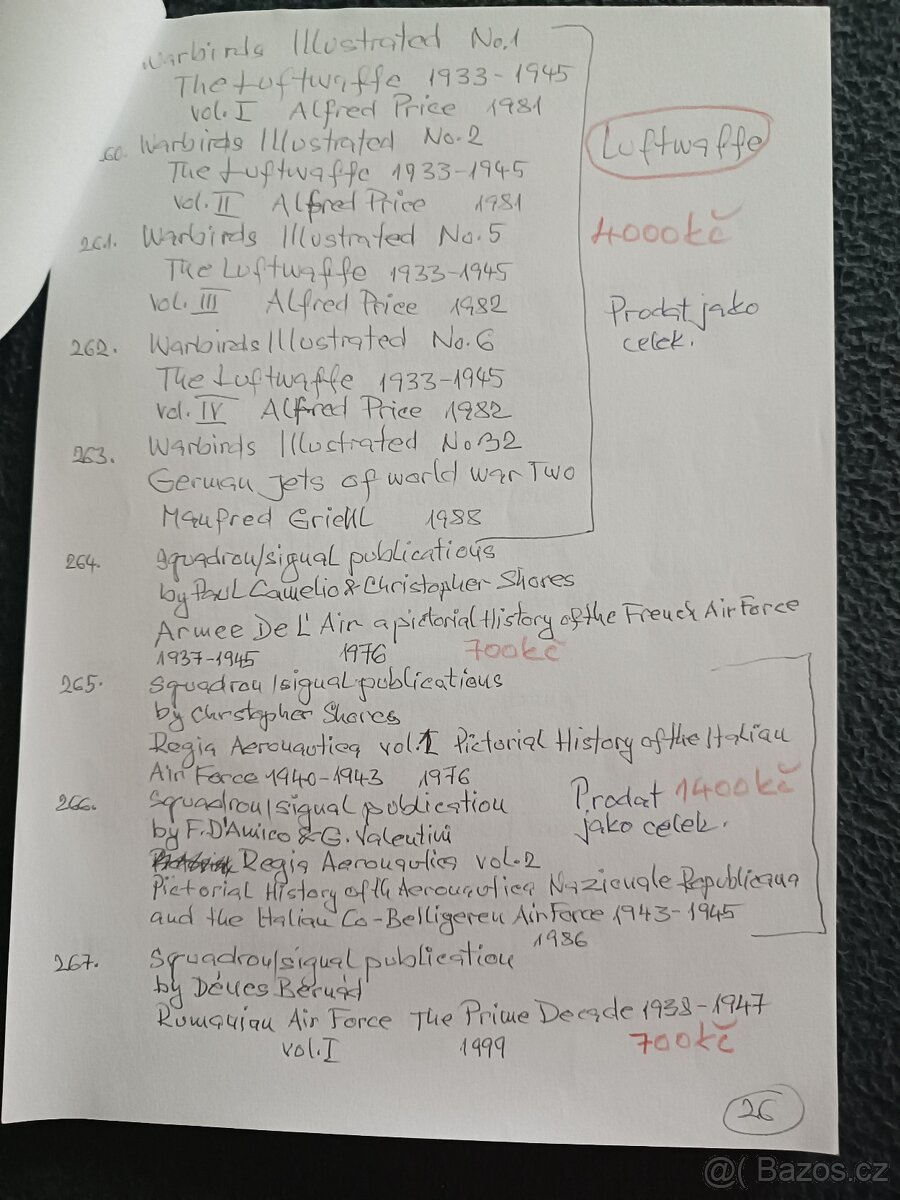 Warbirds Illustrated No.1
The Luftwaffe 1933-1945
vol. I Alfred Price 1981
60. Warbirds Illustrated No.2
The Luftwaffe 1933-1945
vol. II Alfred Price 1981
261. Warbirds Illustrated No.5
The Luftwaffe 1933-1945
vol. III Alfred Price 1982
262. Warbirds Illustrated No.6
The Luftwaffe 1933-1945
vol. IV Alfred Price 1982
263. Warbirds Illustrated No 32
German Jets of world war Two
Manfred Griehl 1988
Luftwaffe
4000kč
Prodat jako
celek.
264. Squadron/signal publications
by Paul Camelio & Christopher Shores
Armee De L'Air a pictorial History of the French Air Force
1937-1945 1976 700kč
265. Squadron/signal publications
by Chrstopher Shores
Regia Aeronautica vol.1 Pictorial History of the Italian
Air Force 1940-1943 1976
266. Squadron/signal publication
by F. D'Amico & G. Valentini
Regia Aeronautica vol.2
Pictorial History of th Aeronautica Nazionale Republicana
and the Italian Co-Belligeren Air Force 1943-1945
1986
Prodat 1400kč
jako celek.
267. Squadron/signal publication
by Dénes Bernád
Rumanian Air Force The Prime Decade 1938-1947
vol. I 1999 700kč
26
@( Bazos.cz